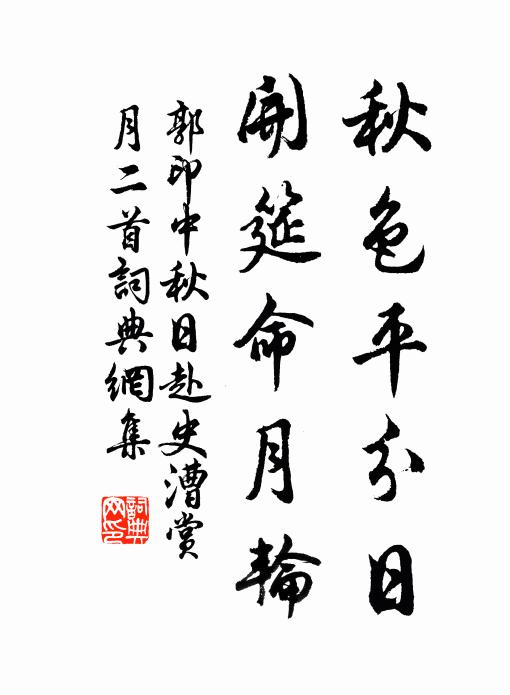 秋色平分日
開筵命月輪
郭印中秋日赴史漕賞
月二首詞典網集
詞典網印